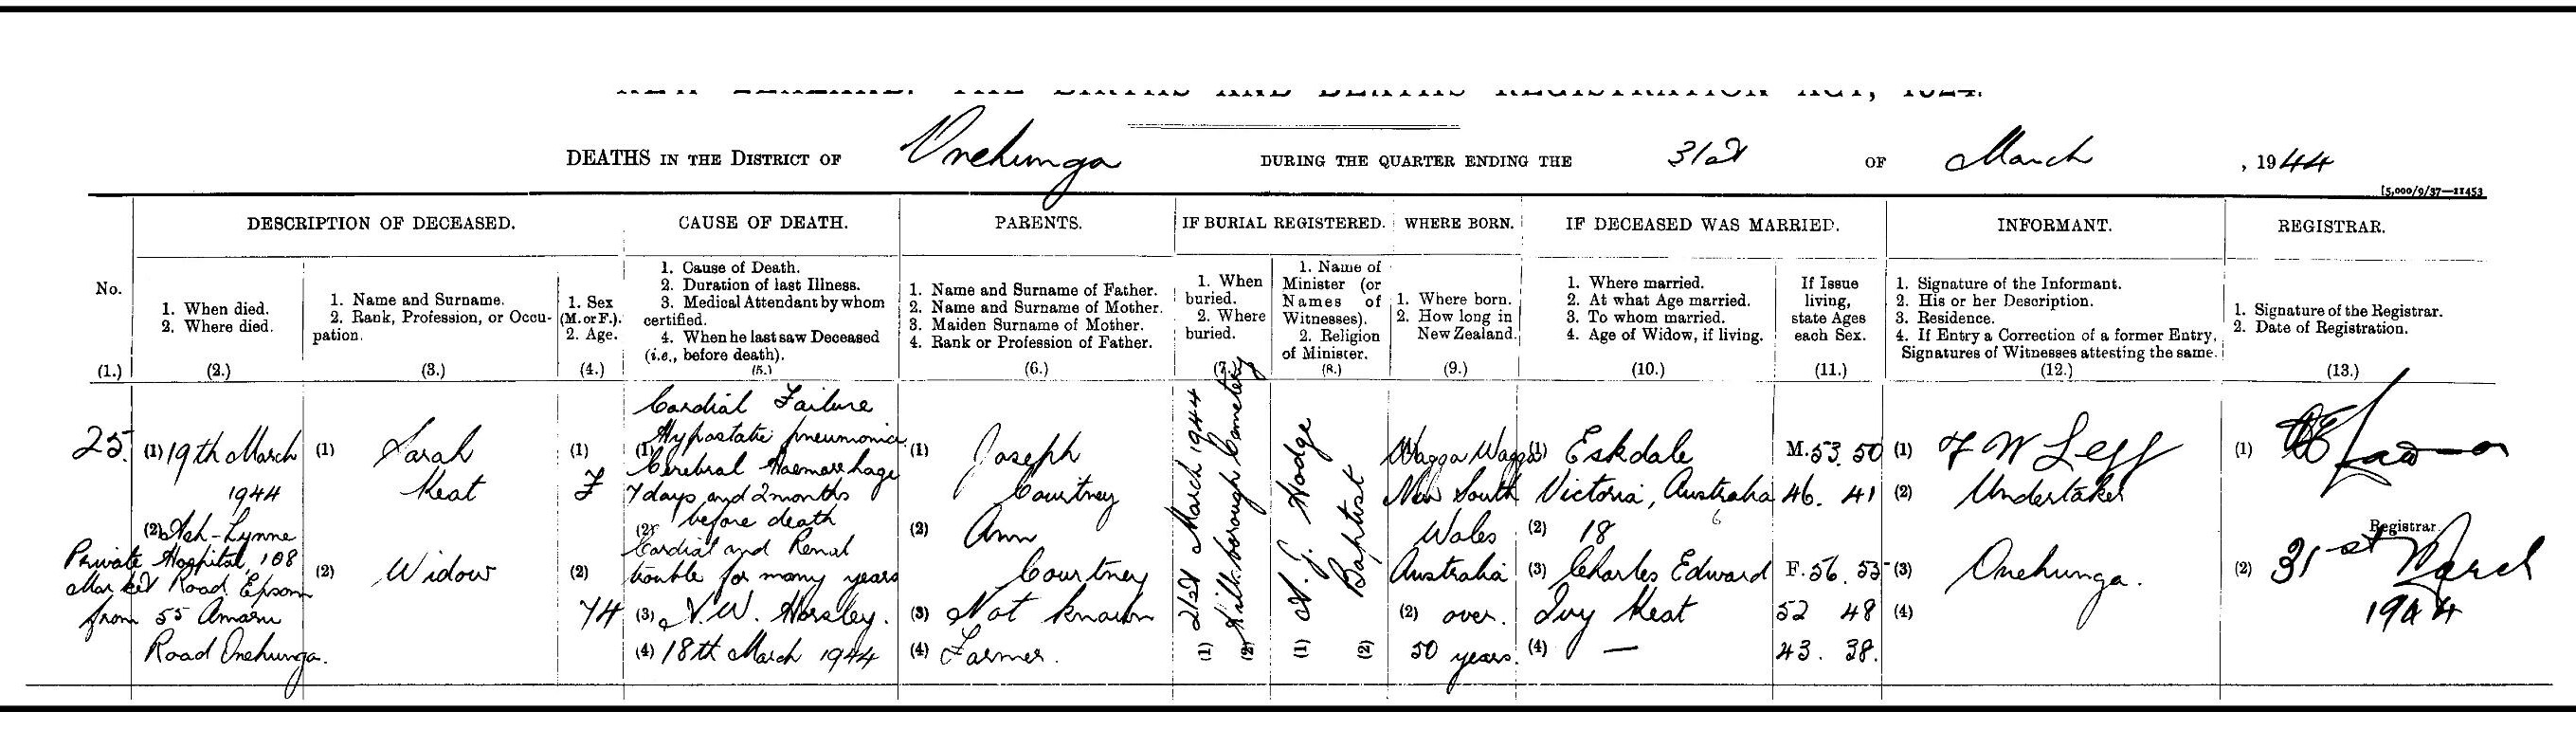 DEATHS IN THE DISTRICT OF Onehunga DURING THE QUARTER ENDING THE 31st OF March, 1944
[5,000/9/37—11453
No.
(1.)
DESCRIPTION OF DECEASED.
1. When died.
2. Where died.
(2.)
1. Name and Surname.
2. Rank, Profession, or Occu-
pation.
(3.)
1. Sex
(M. or F.).
2. Age.
(4.)
CAUSE OF DEATH.
1. Cause of Death.
2. Duration of last Illness.
3. Medical Attendant by whom
certified.
4. When he last saw Deceased
(i.e., before death).
(5.)
PARENTS.
1. Name and Surname of Father.
2. Name and Surname of Mother.
3. Maiden Surname of Mother.
4. Rank or Profession of Father.
(6.)
IF BURIAL REGISTERED.
1. When
buried.
2. Where
buried.
(7.)
1. Name of
Minister (or
Names of
Witnesses).
2. Religion
of Minister.
(8.)
WHERE BORN.
1. Where born.
2. How long in
New Zealand.
(9.)
IF DECEASED WAS MARRIED.
1. Where married.
2. At what Age married.
3. To whom married.
4. Age of Widow, if living.
(10.)
If Issue
living,
state Ages
each Sex.
(11.)
INFORMANT.
1. Signature of the Informant.
2. His or her Description.
3. Residence.
4. If Entry a Correction of a former Entry,
Signatures of Witnesses attesting the same.
(12.)
REGISTRAR.
1. Signature of the Registrar.
2. Date of Registration.
(13.)
25.
(1) 19th March
1944
(2) Ash-Lynne
Private Hospital, 108
Market Road Epsom
from 55 Amaru
Road Onehunga.
(1) Sarah
Keat
(2) Widow
(1)
F
(2)
74
Cardial Failure
(1) Hypostatic pneumonia
Cerebral Haemorrhage
7 days and 2 months
(2) before death
Cardial and Renal
trouble for many years
(3) N. W. Horsley.
(4) 18th March 1944
(1) Joseph
Courtney
(2) Ann
Courtney
(3) Not known
(4) Farmer.
(1) 21st March 1944
(2) Hillsborough Cemetery
(1) Hodge
(2) Baptist
Wagga Wagga
New South
Wales
Australia
(2) over.
50 years.
(1) Eskdale
Victoria, Australia
(2) 18
(3) Charles Edward
Ivy Keat
(4) —
M. 53. 50
46. 41
F. 56. 53
52 48
43. 38.
(1) F W Legg
(2) Undertaker
(3) Onehunga.
(4)
(1)
Registrar.
(2) 31st March
1944